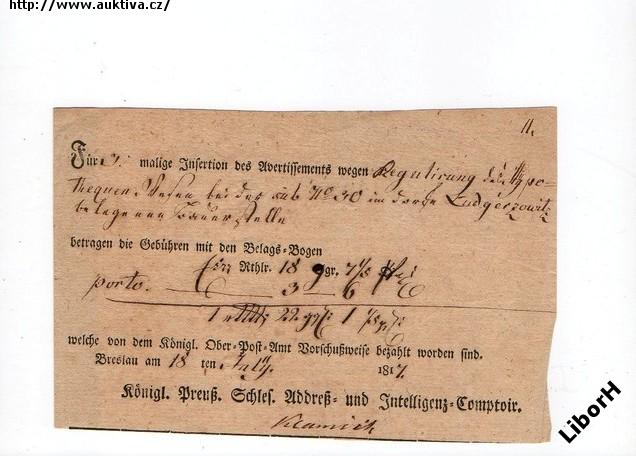 http://www.auktiva.cz/
11.
Für 3. malige Insertion des Avertissements wegen Regulirung des Hypo-
thequen Wesen bei der sub No 30 im Dorfe Ludgerzowitz
belegenen Bauerstelle
betragen die Gebühren mit den Belags-Bogen
Ein Rthlr. 18 ggr. 7 1/5
porto. 3 6
1 22 1
welche von dem Königl. Ober-Post-Amt Vorschußweise bezahlt worden sind.
Breslau am 18 ten July 1817.
Königl. Preuß. Schles. Addreß- und Intelligenz-Comptoir.
LiborH